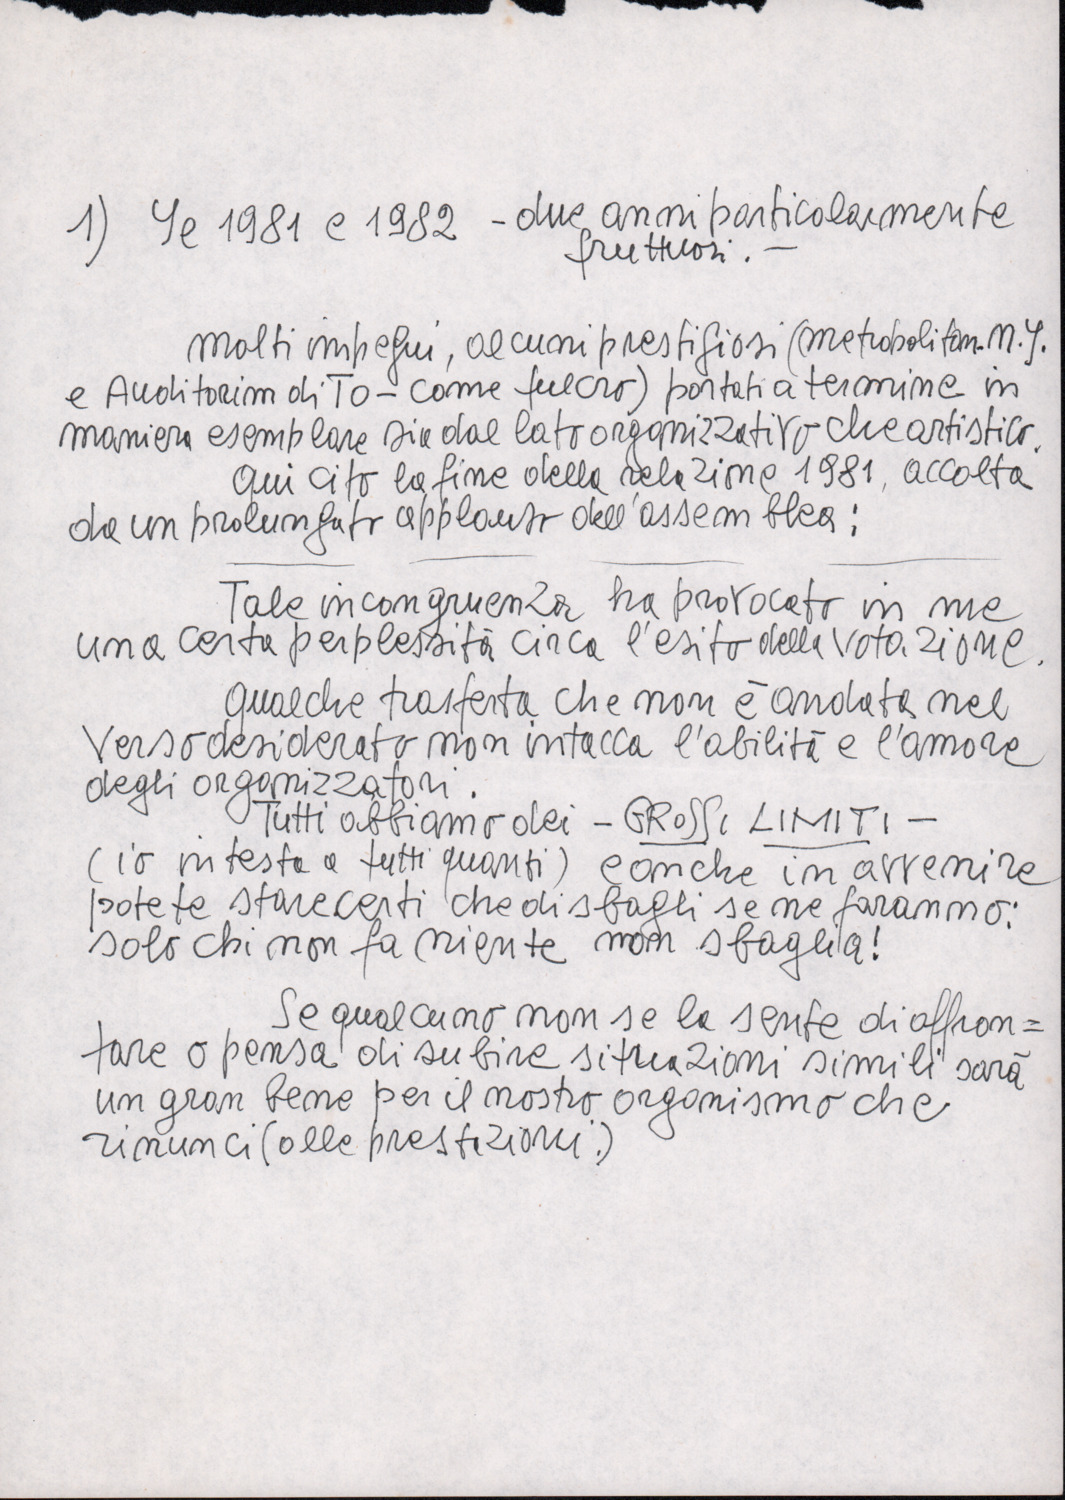 1) Ye 1981 e 1982 - due anni particolarmente
fruttuosi. -
molti impegni, alcuni prestigiosi (metropolitan. N.Y.
e Auditorim di TO - come fulcro) portati a termine in
maniera esemplare sia dal lato organizzativo che artistico.
Qui cito la fine della relazione 1981, accolta
da un prolungato applauso dell'assemblea:
Tale incongruenza ha provocato in me
una certa perplessità circa l'esito della votazione.
Qualche trasferta che non è andata nel
verso desiderato non intacca l'abilità e l'amore
degli organizzatori.
Tutti abbiamo dei - GROSSI LIMITI -
(io in testa a tutti quanti) e anche in avvenire
potete stare certi che di sbagli se ne faranno:
solo chi non fa niente non sbaglia!
Se qualcuno non se la sente di affron=
tare o pensa di subire situazioni simili sarà
un gran bene per il nostro organismo che
rinunci (alle prestazioni.)